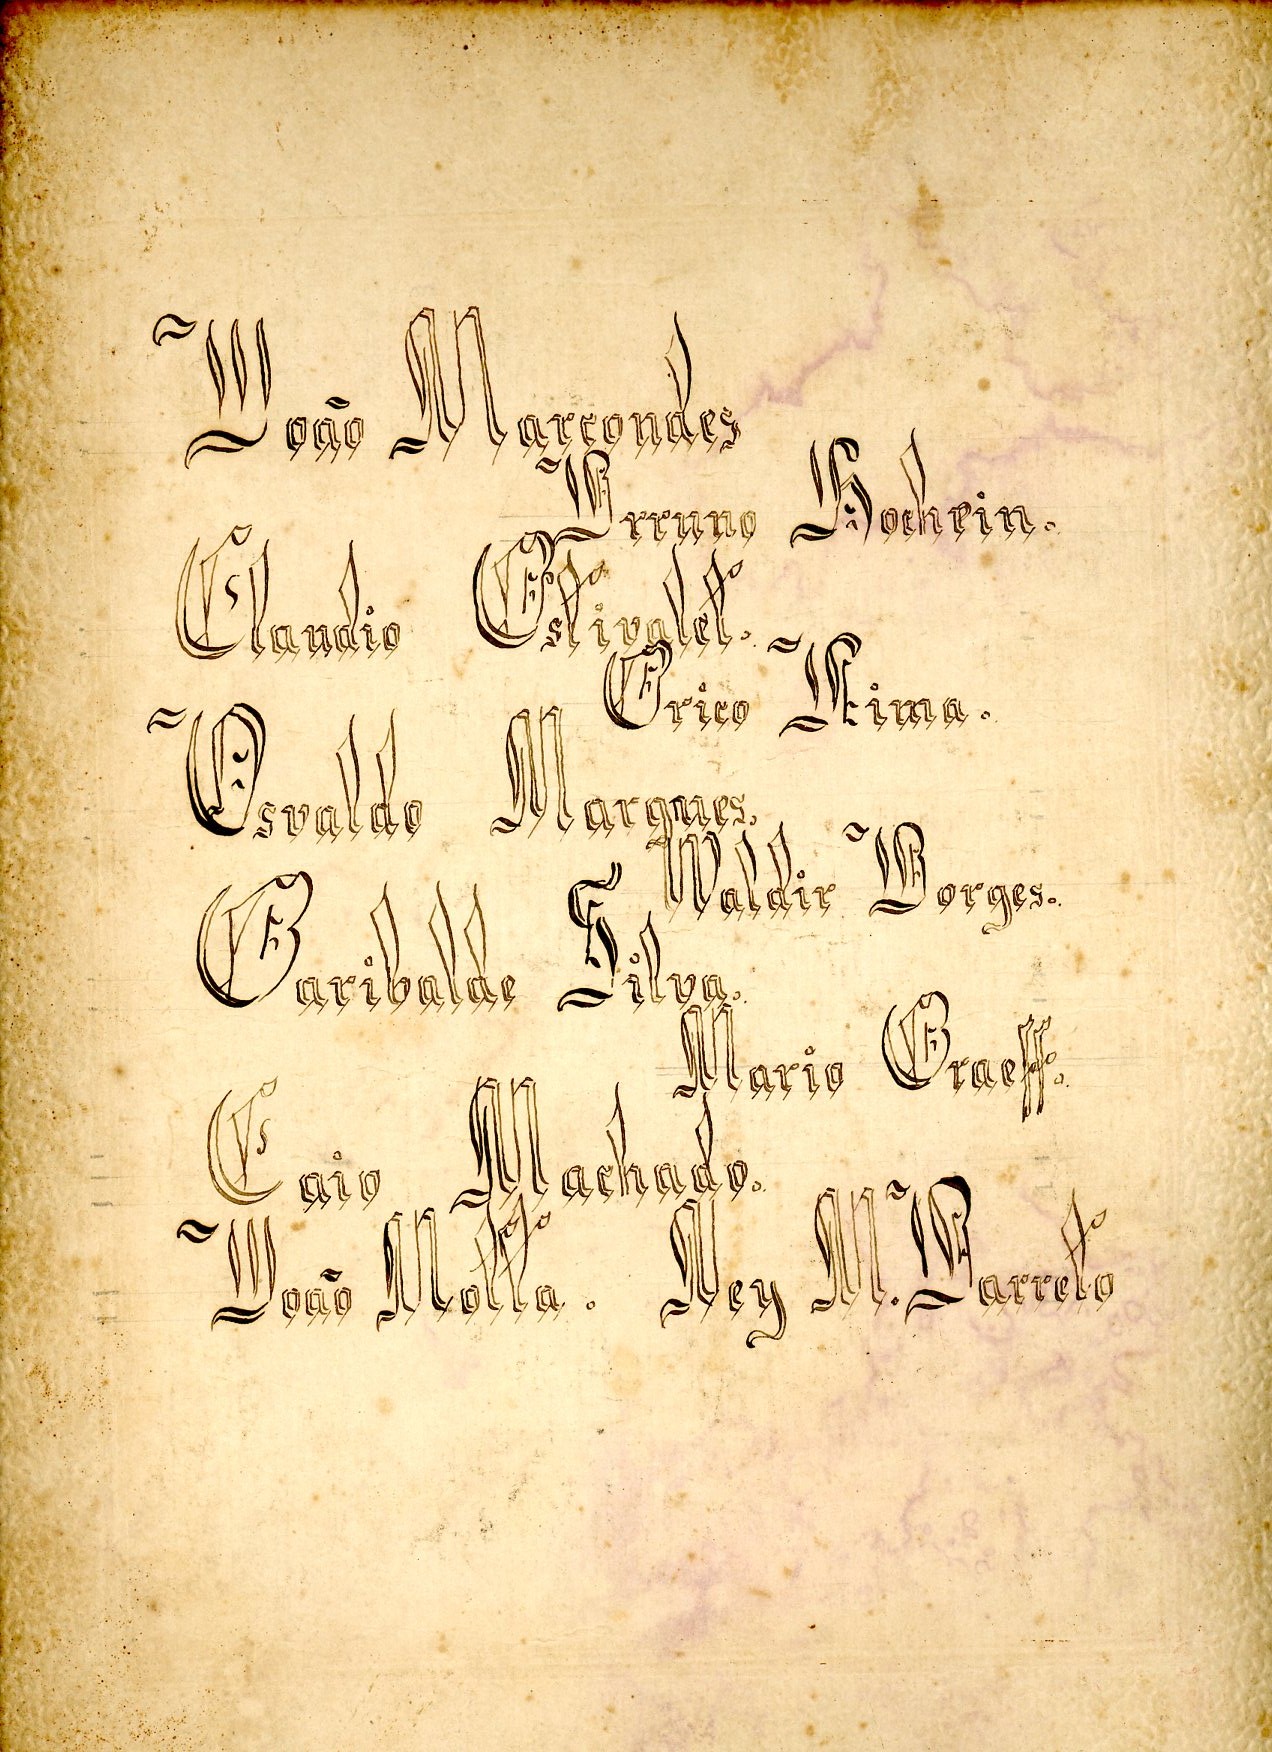 João Marcondes
Brruno Hochein.
Claudio Estivalet.
Erico Kima.
Osvaldo Marques.
Waldir Borges.
Garibalde Silva.
Mario Graeff.
Caio Machado.
João Motta. Ney M. Barreto